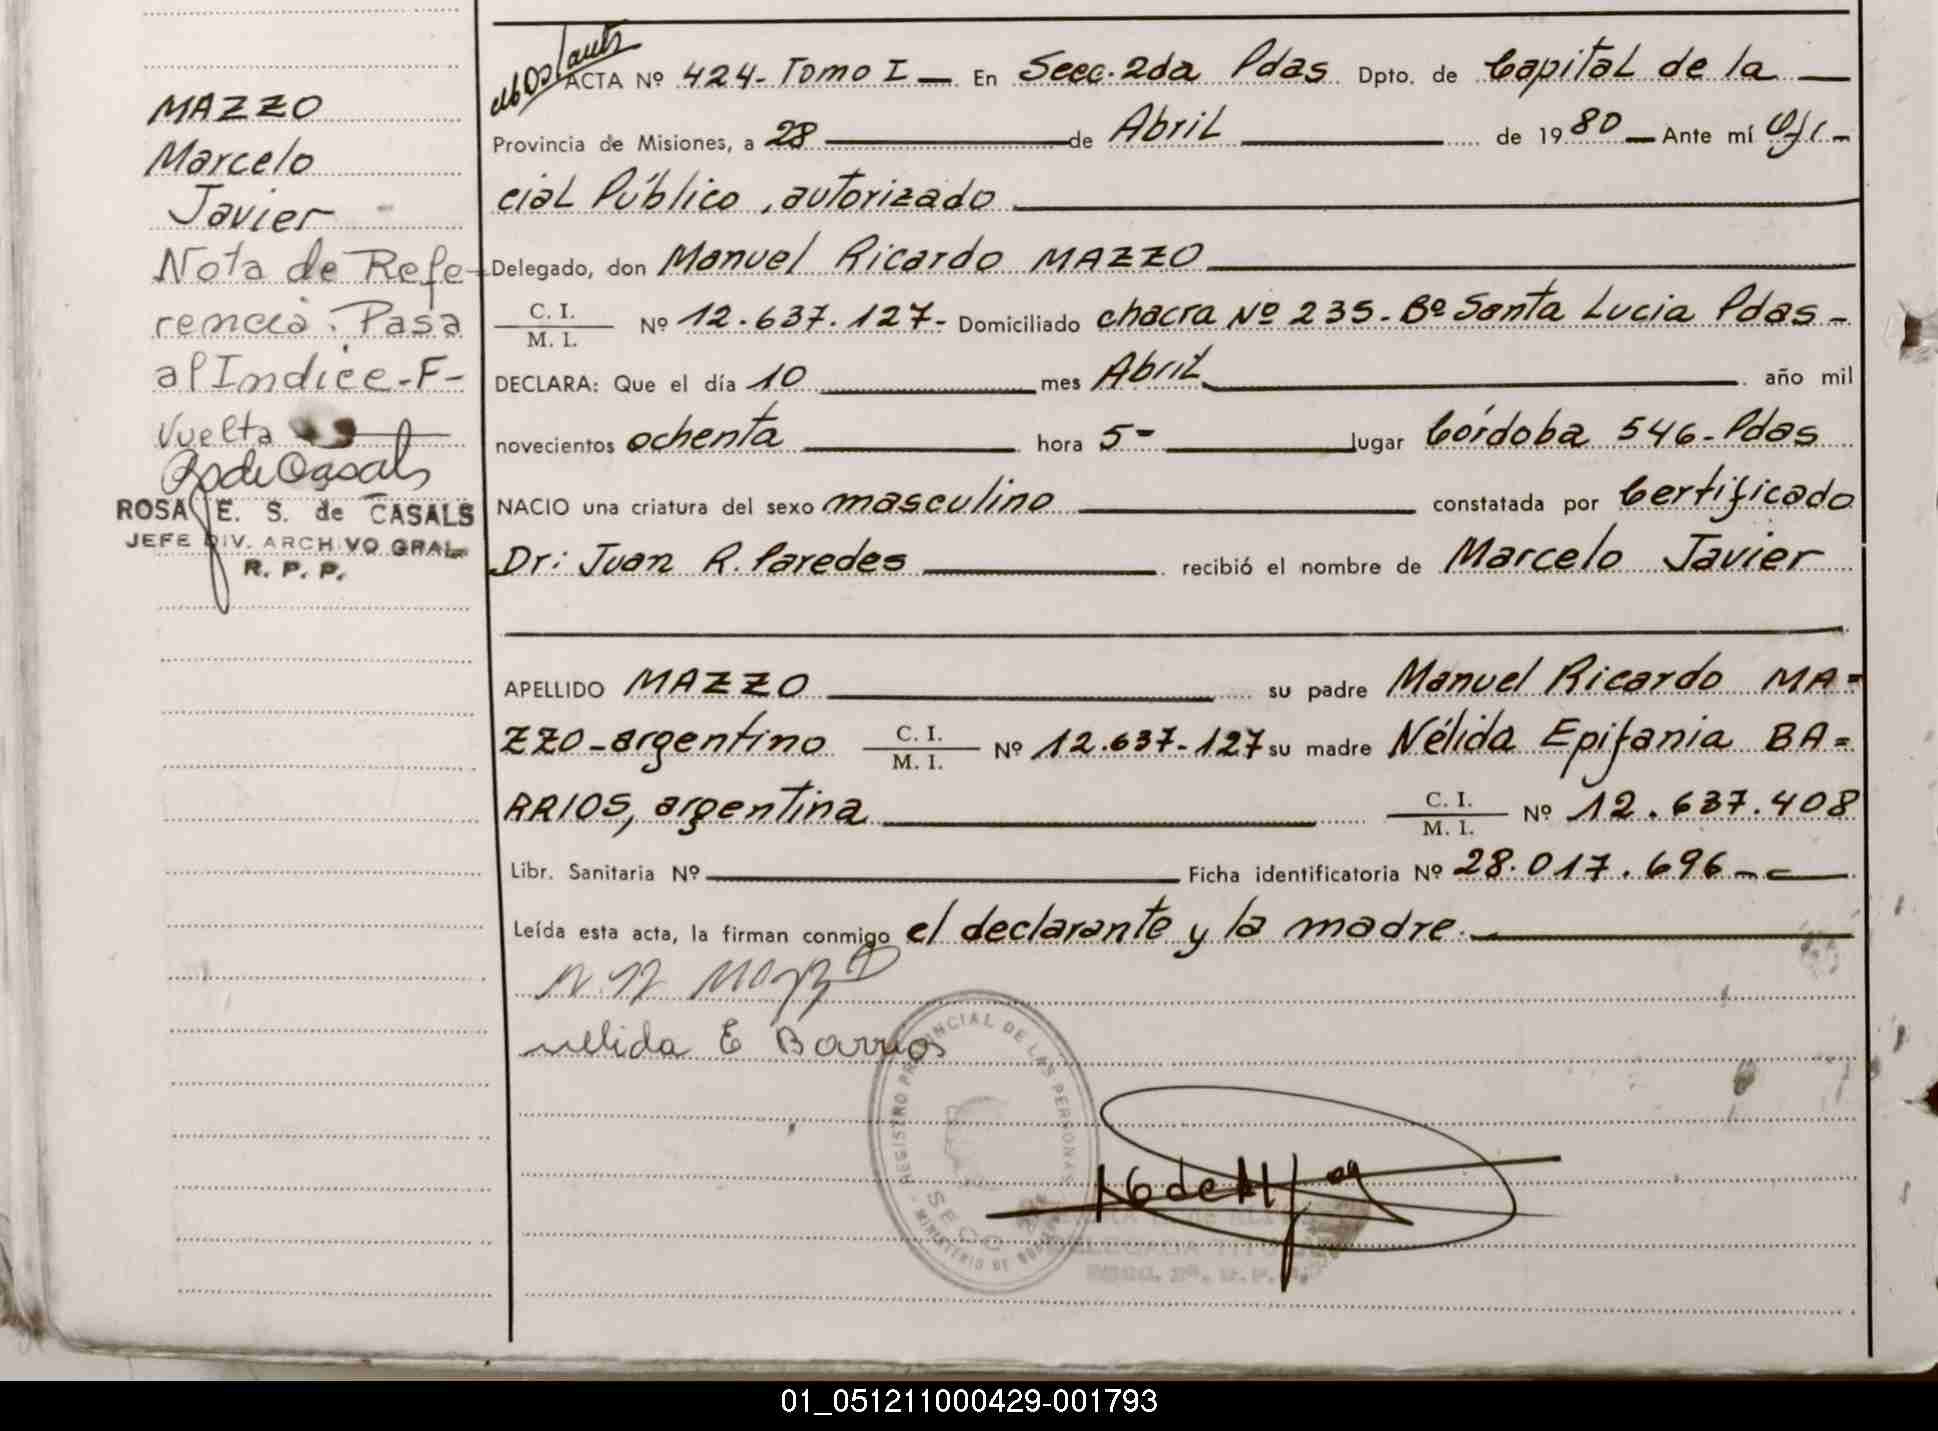 MAZZO
Marcelo
Javier
Nota de Refe-
rencia: Pasa
al Indice-F-
Vuelta
RSdeCasals
ROSA E. S. de CASALS
JEFE DIV. ARCHIVO GRAL.
R. P. P.
ACTA Nº 424- Tomo I — En Secc. 2da Pdas Dpto. de Capital de la —
Provincia de Misiones, a 28 — de Abril — de 1980 — Ante mí Ofi-
cial Público, autorizado —
Delegado, don Manuel Ricardo MAZZO —
C. I.
M. I. Nº 12.637.127- Domiciliado chacra Nº 235- Bº Santa Lucia Pdas-
DECLARA: Que el día 10 — mes Abril — año mil
novecientos ochenta — hora 5- — lugar Córdoba 546- Pdas
NACIO una criatura del sexo masculino — constatada por Certificado
Dr: Juan R. Paredes — recibió el nombre de Marcelo Javier
APELLIDO MAZZO — su padre Manuel Ricardo MA=
ZZO-argentino C. I.
M. I. Nº 12.637-127 su madre Nélida Epifania BA=
RRIOS, argentina — C. I.
M. I. Nº 12.637.408
Libr. Sanitaria Nº — Ficha identificatoria Nº 28.017.696 —
Leída esta acta, la firman conmigo el declarante y la madre. —
Mazzo
nelida E Barrios
REGISTRO PROVINCIAL DE LAS PERSONAS
SECC
MINISTERIO DE
DELEGADA
01_051211000429-001793